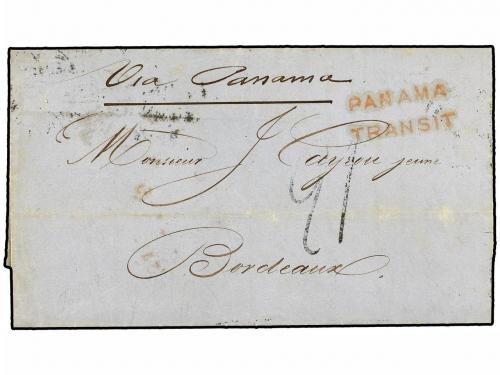 Via Panama
PANAMA
TRANSIT
Monsieur J. Cayrou jeune
21
Bordeaux.